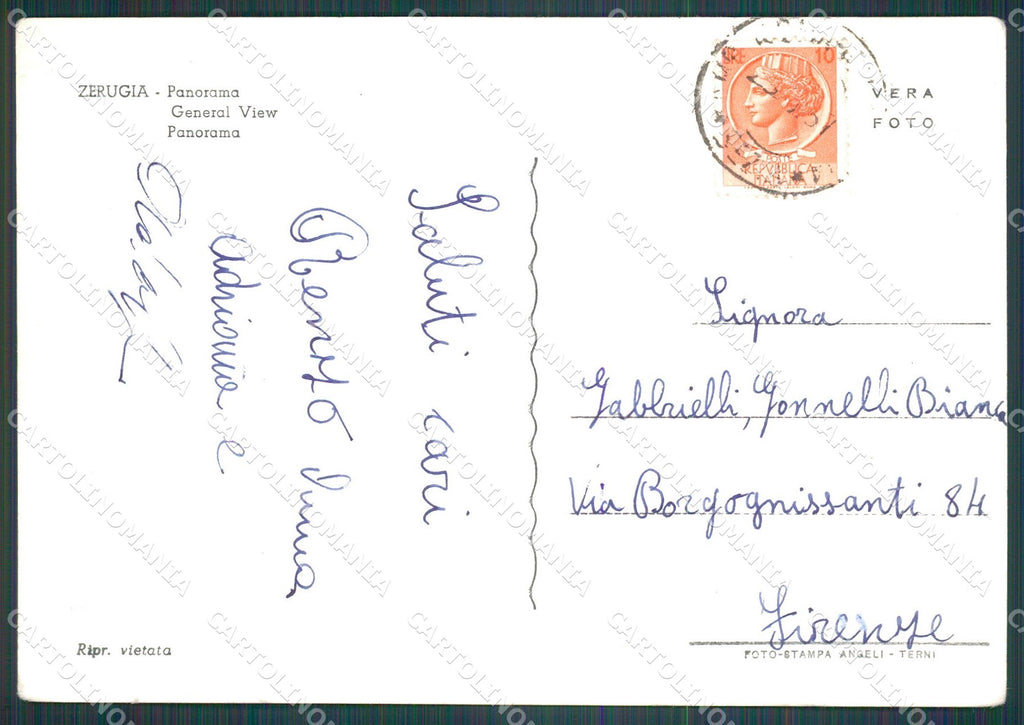 ZERUGIA - Panorama
General View
Panorama
Saluti cari
Renzo
Adriana e
VERA
FOTO
LIRE 10
POSTE
REPVBBLICA
ITALIANA
Signora
Gabbrielli, Gonnelli Bianca
Via Borgognissanti 84
Firenze
Ripr. vietata
FOTO-STAMPA ANGELI - TERNI
CARTOLINOMANIA